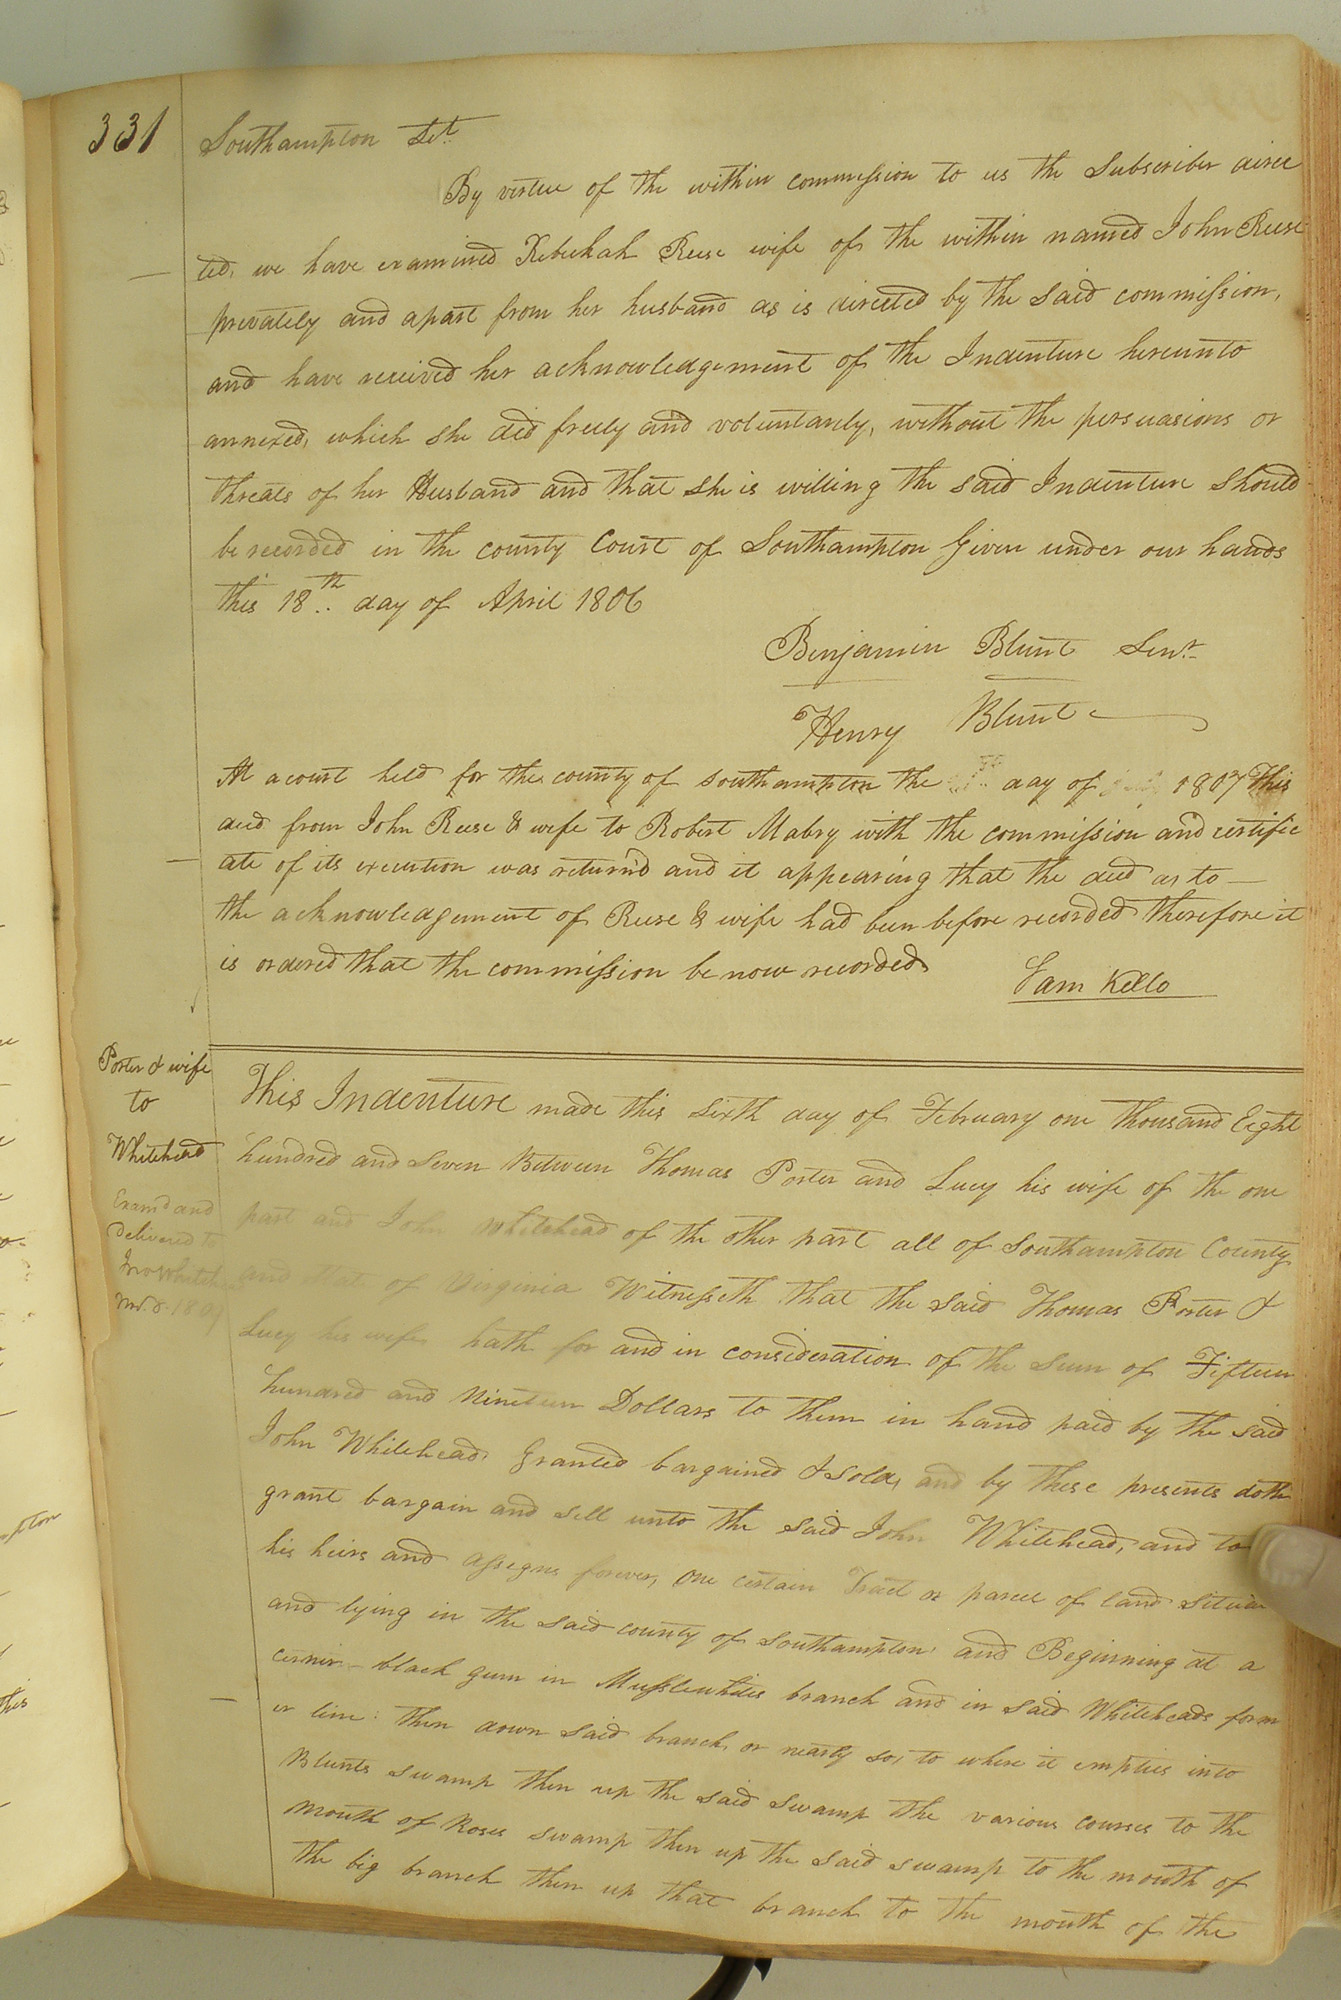 331
Southampton Sct
By virtue of the within commission to us the Subscriber direc
ted, we have examined Rebekah Reese wife of the within named John Reese
privately and apart from her husband as is directed by the said commission,
and have received her acknowledgement of the Indenture hereunto
annexed, which she did freely and voluntarely, without the persuasions or
threats of her Husband and that she is willing the said Indenture should
be recorded in the county Court of Southampton Given under our hands
this 18th day of April 1806
Benjamin Blunt Senr
Henry Blunt
At a court held for the county of Southampton the day of 1807 This
deed from John Reese & wife to Robert Mabry with the commission and certific
ate of its execution was return'd and it appearing that the deed as to
the acknowledgement of Reese & wife had been before recorded therefore it
is ordered that the commission be now recorded
Sam Kello
Porter & wife
to
Whitehead
Exam'd and
delivered to
Jno Whiteh
This Indenture made this sixth day of February one thousand Eight
hundred and seven Between Thomas Porter and Lucy his wife of the one
part and John Whitehead of the other part all of Southampton County
and State of Virginia Witnesseth that the said Thomas Porter &
Lucy his wife hath for and in consideration of the sum of Fifteen
hundred and Nineteen Dollars to them in hand paid by the said
John Whitehead Granted bargained & sold, and by these presents doth
grant bargain and sell unto the said John Whitehead, and to
his heirs and assigns forever, one certain Tract or parcel of land situa
and lying in the said county of Southampton and Beginning at a
corner black gum in Musslewhites branch and in said Whiteheads form
er line: then down said branch, or nearly so, to where it empties into
Blunts swamp then up the said swamp the various courses to the
mouth of Roses swamp then up the said swamp to the mouth of
the big branch then up that branch to the mouth of the